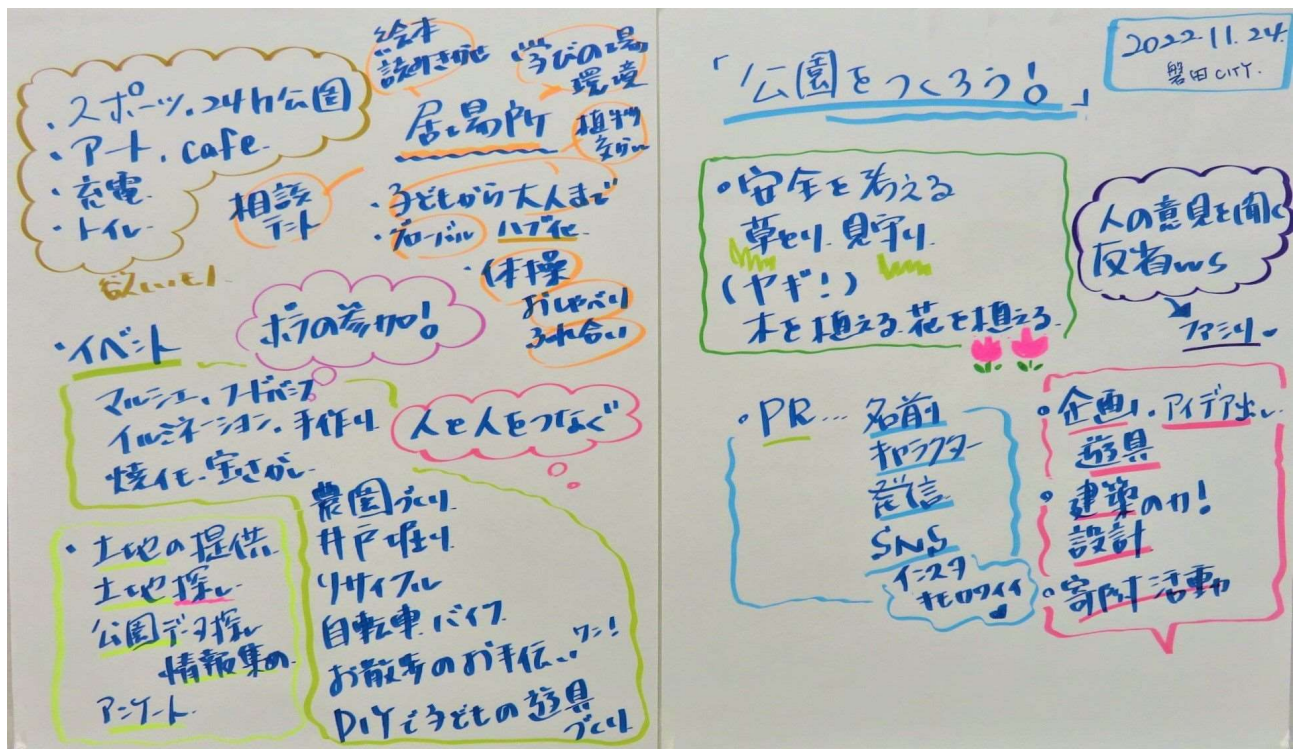 ・スポーツ・24h公園
・アート、cafe
・充電
・トイレ
欲しいモノ
絵本
読みきかせ
学びの場
環境
居場所
植物
相談
テント
・子どもから大人まで
・グローバル ハブ化
・体操
おしゃべり
ふれ合い
ボラの参加!
・イベント
マルシェ、フードバンク
イルミネーション、手作り
焼イモ、宝さがし
人と人をつなぐ
・土地の提供
土地探し
公園データ探し
情報集め
アンケート
農園づくり
井戸堀り
リサイクル
自転車、バイク
お散歩のお手伝い ワン!
DIYで子どもの遊具
づくり
「公園をつくろう!」
2022.11.24.
磐田CITY.
・安全を考える
草とり、見守り
(ヤギ!)
木を植える、花を植える
人の意見を聞く
反省ws
ファシリ
・PR… 名前
キャラクター
発信
SNS
インスタ
キモカワイイ
・企画・アイデア出し
遊具
・建築の力!
設計
・寄附活動